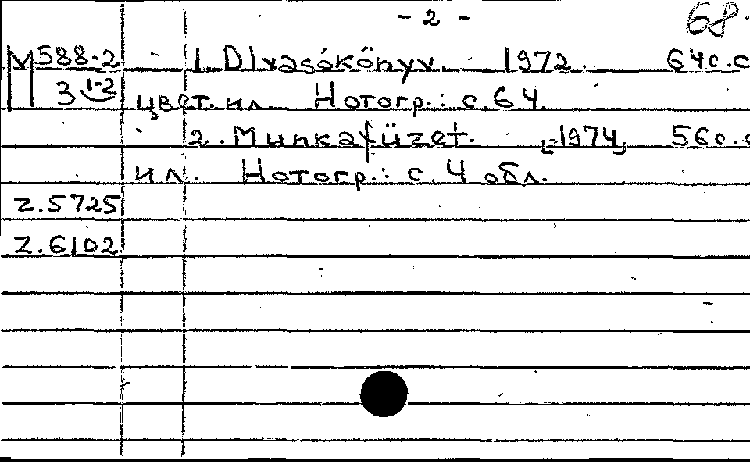 - 2 -
68.
М588-2 1. Olvasókönyv. 1972. 64с.с
3 1-2 цвет. ил. Нотогр.: с.64.
2. Munkafüzet. [1974] 56с.с
ил. Нотогр.: с.4 обл.
Z.5725
Z.6102